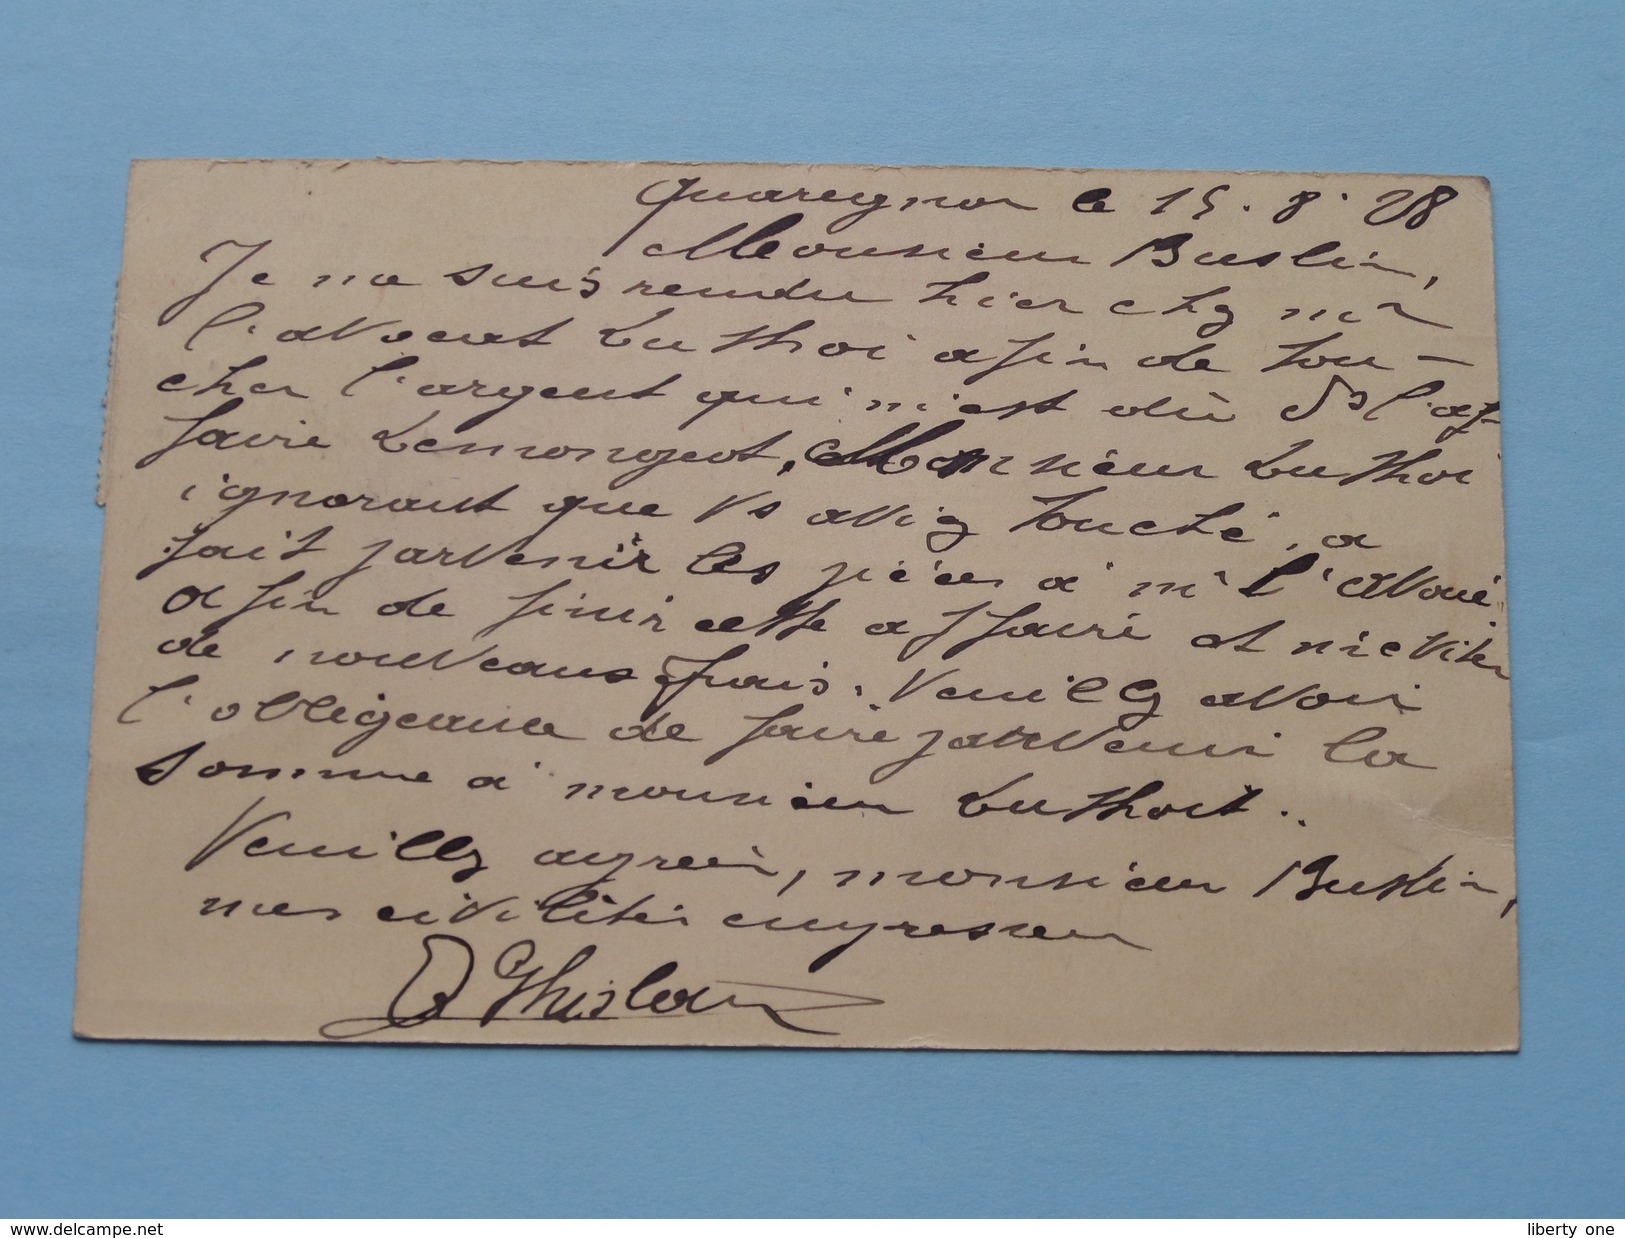 Quaregnon le 15.8.28
Monsieur Buslin,
Je me suis rendu hier chez mr
l'avocat Luthoi afin de tou-
cher l'argent qui m'est dû ds l'af-
faire Lemongeot, Monsieur Luthoi
ignorant que Vs aviez touché, a
fait parvenir les pièces à mr l'avoué
afin de finir cette affaire et m'eviter
de nouveaus frais. Veuillez avoir
l'obligeance de faire parvenir la
somme à monsieur Luthoit..
Veuillez agréer, monsieur Buslin,
mes civilités empressees
Ghislain
www.delcampe.net
liberty_one